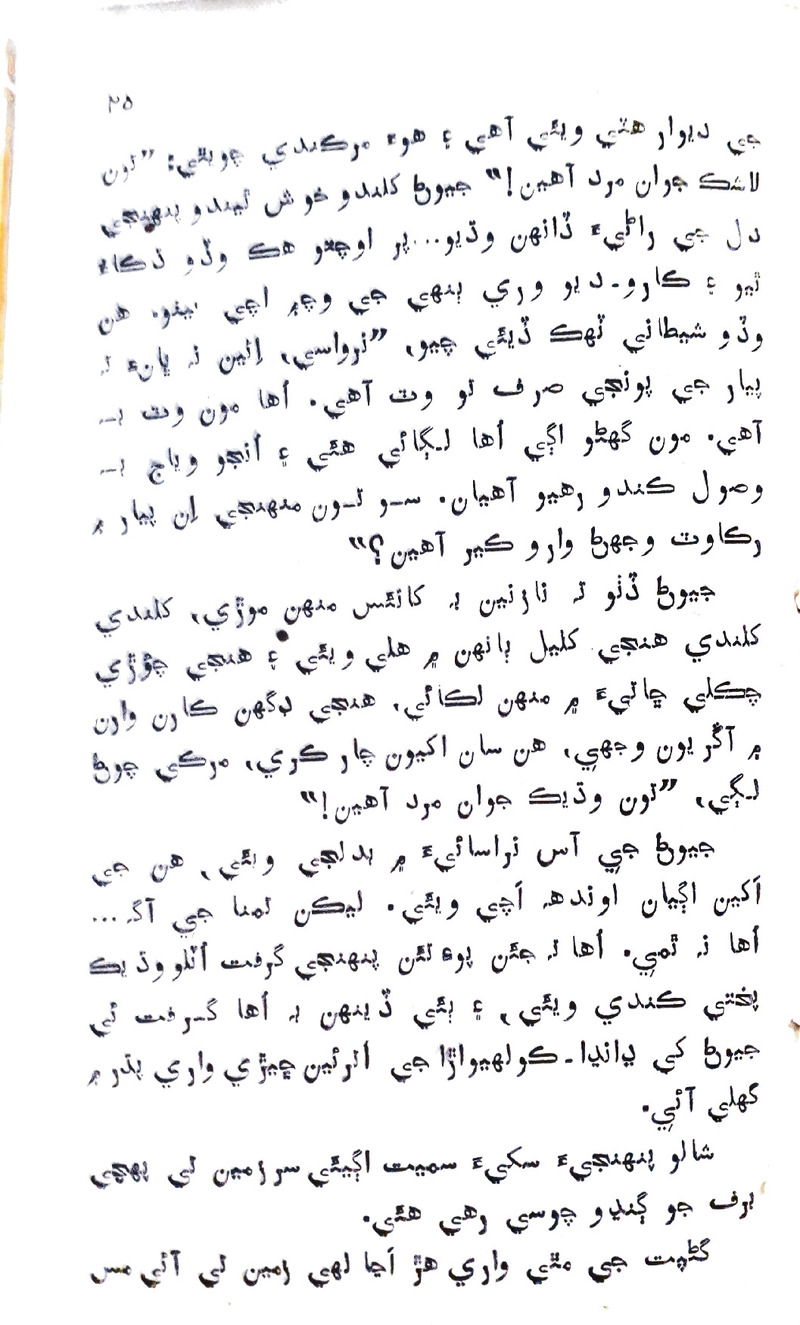 ۲۵
جي ديوار هٽي ويئي آهي ۽ هوءَ مرڪندي چويٿي: ”تون
لاشڪ جوان مرد آهين!“ جيوڻ کلندو خوش ٿيندو پنهنجي
دل جي راڻيءَ ڏانهن وڌيو...پر اوچتو هڪ وڏو ڌڪاءُ
ٿيو ۽ ڪارو-ديو وري ٻنهي جي وچ۾ اچي بيٺو. هن
وڏو شيطاني ٽهڪ ڏيئي چيو، ”نرواسي، اِئين نہ ڀانءِ تہ
پيار جي پونجي صرف تو وٽ آهي. اُها مون وٽ بہ
آهي. مون گهڻو اڳي اُها لڳائي هئي ۽ اُنجو وياج بہ
وصول ڪندو رهيو آهيان. سو تون منهنجي اِن پيار ۾
رڪاوٽ وجهڻ وارو ڪير آهين؟“
جيوڻ ڏٺو تہ نازنين بہ کانئس منهن موڙي، کلندي
کلندي هنجي کليل ٻانهن ۾ هلي ويئي ۽ هنجي چؤڙي
چڪلي ڇاتيءَ ۾ منهن لڪائي، هنجي ڊگهن ڪارن وارن
۾ آڱريون وجهي، هن سان اکيون چار ڪري، مرڪي چوڻ
لڳي، ”تون وڌيڪ جوان مرد آهين!“
جيوڻ جي آس نراسائيءَ ۾ بدلجي ويئي، هن جي
اَکين اڳيان اونده اَچي ويئي. ليڪن تمنا جي آگ...
اُها نہ ٿمي. اُها تہ جئن پوءِ تئن پنهنجي گرفت اُٽلو وڌيڪ
پختي ڪندي ويئي، ۽ ٻئي ڏينهن بہ اُها گرفت ئي
جيوڻ کي ڍانڍا-ڪولهيواڙا جي اُترئين ڇيڙي واري پڌر ۾
گهلي آئي.
شالو پنهنجيءَ سکيءَ سميت اڳيئي سرزمين تي پهچي
برف جو ڳنڍو چوسي رهي هئي.
گڻپت جي مٿي واري هڙ اَڃا لهي زمين تي آئي مس